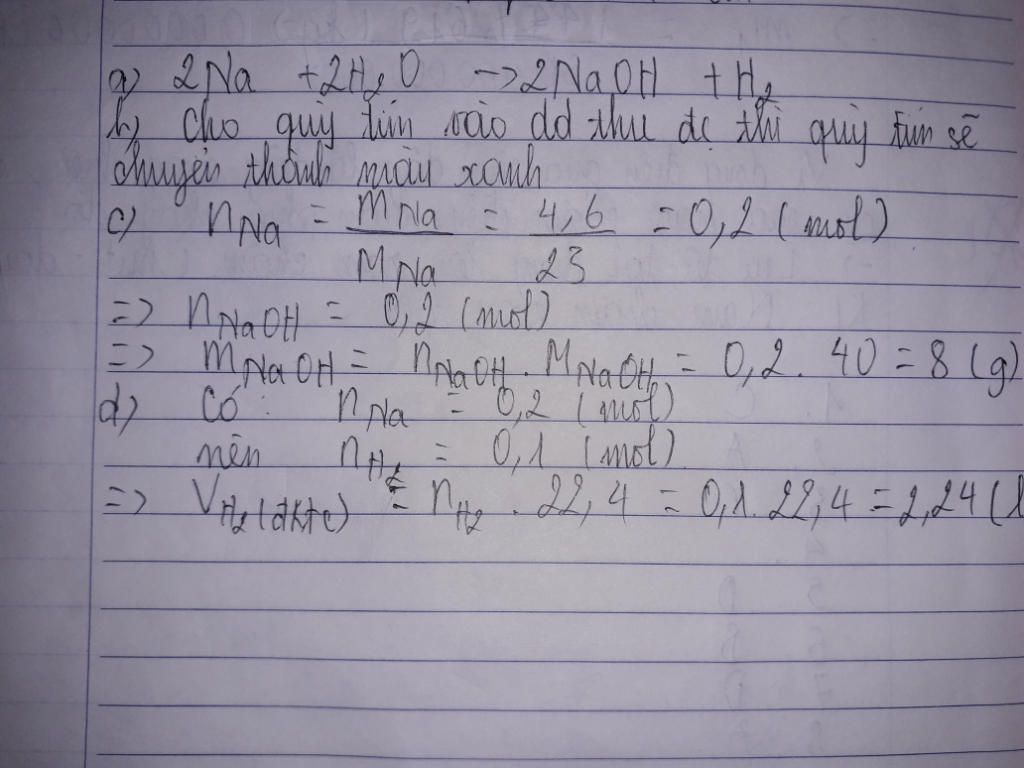 a) 2Na + 2H₂O → 2NaOH + H₂
b) Cho quỳ tím vào dd thu đc thì quỳ tím sẽ
chuyển thành màu xanh
c) nNa = mNa / MNa = 4,6 / 23 = 0,2 (mol)
=> nNaOH = 0,2 (mol)
=> mNaOH = nNaOH . MNaOH = 0,2 . 40 = 8 (g)
d) Có : nNa = 0,2 (mol)
nên nH₂ = 0,1 (mol)
=> VH₂(đktc) = nH₂ . 22,4 = 0,1 . 22,4 = 2,24 (l